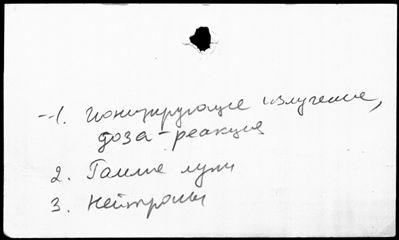 --1. Ионизирующие излучение,
доза-реакция
2. Гамма лучи
3. Нейтроны